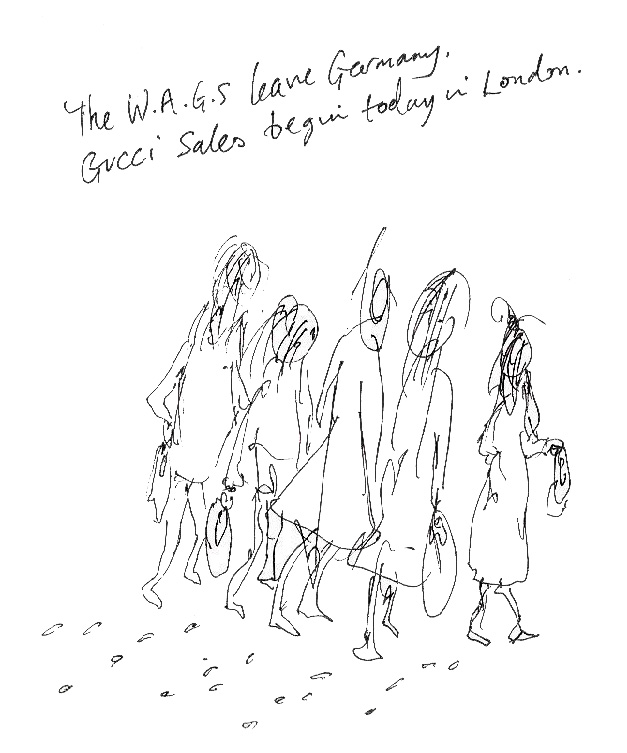 The W.A.G.S leave Germany.
Gucci Sales begin today in London.